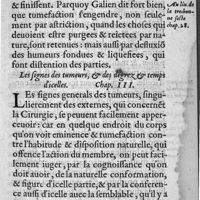 & finissent. Parquoy Galien dit fort bien,
que tumefaction s'engendre, non seule-
ment par astriction, quand les choses qui
deuoient estre purgees & reiectees par na-
ture, sont retenues: mais aussi par desfusiõ
des tumeurs fondues & liquefiees, qui
font distention des parties.
Au liu. de
la trebme
ne suste
chap. 28.
Les signes des tumeurs, & des degrez & temps
d'icelles. Chap. III.
LEs signes generals des tumeurs, singu-
lierement des externes, qui concernẽt
la Cirurgie, se peuuent facilement apper-
ceuoir: car en quelque endroit du corps
qu'on voit eminence & tumefaction con-
tre l'habitude & disposition naturelle, qui
offence l'action du membre, on peut facil-
lement iuger, par la cognoissance qu'on
doit auoir, de la naturelle conformation,
& figure d'icelle partie, & par la conferen-
ce aussi d'icelle auec la semblable, qu'il y a